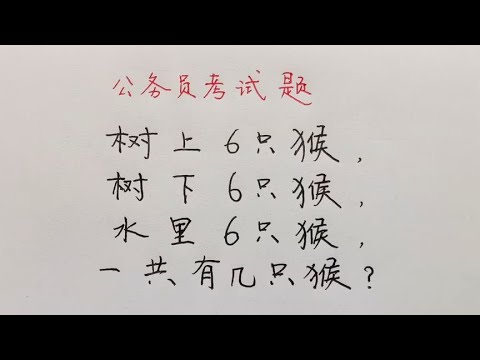 公务员考试题
树上6只猴，
树下6只猴，
水里6只猴，
一共有几只猴？